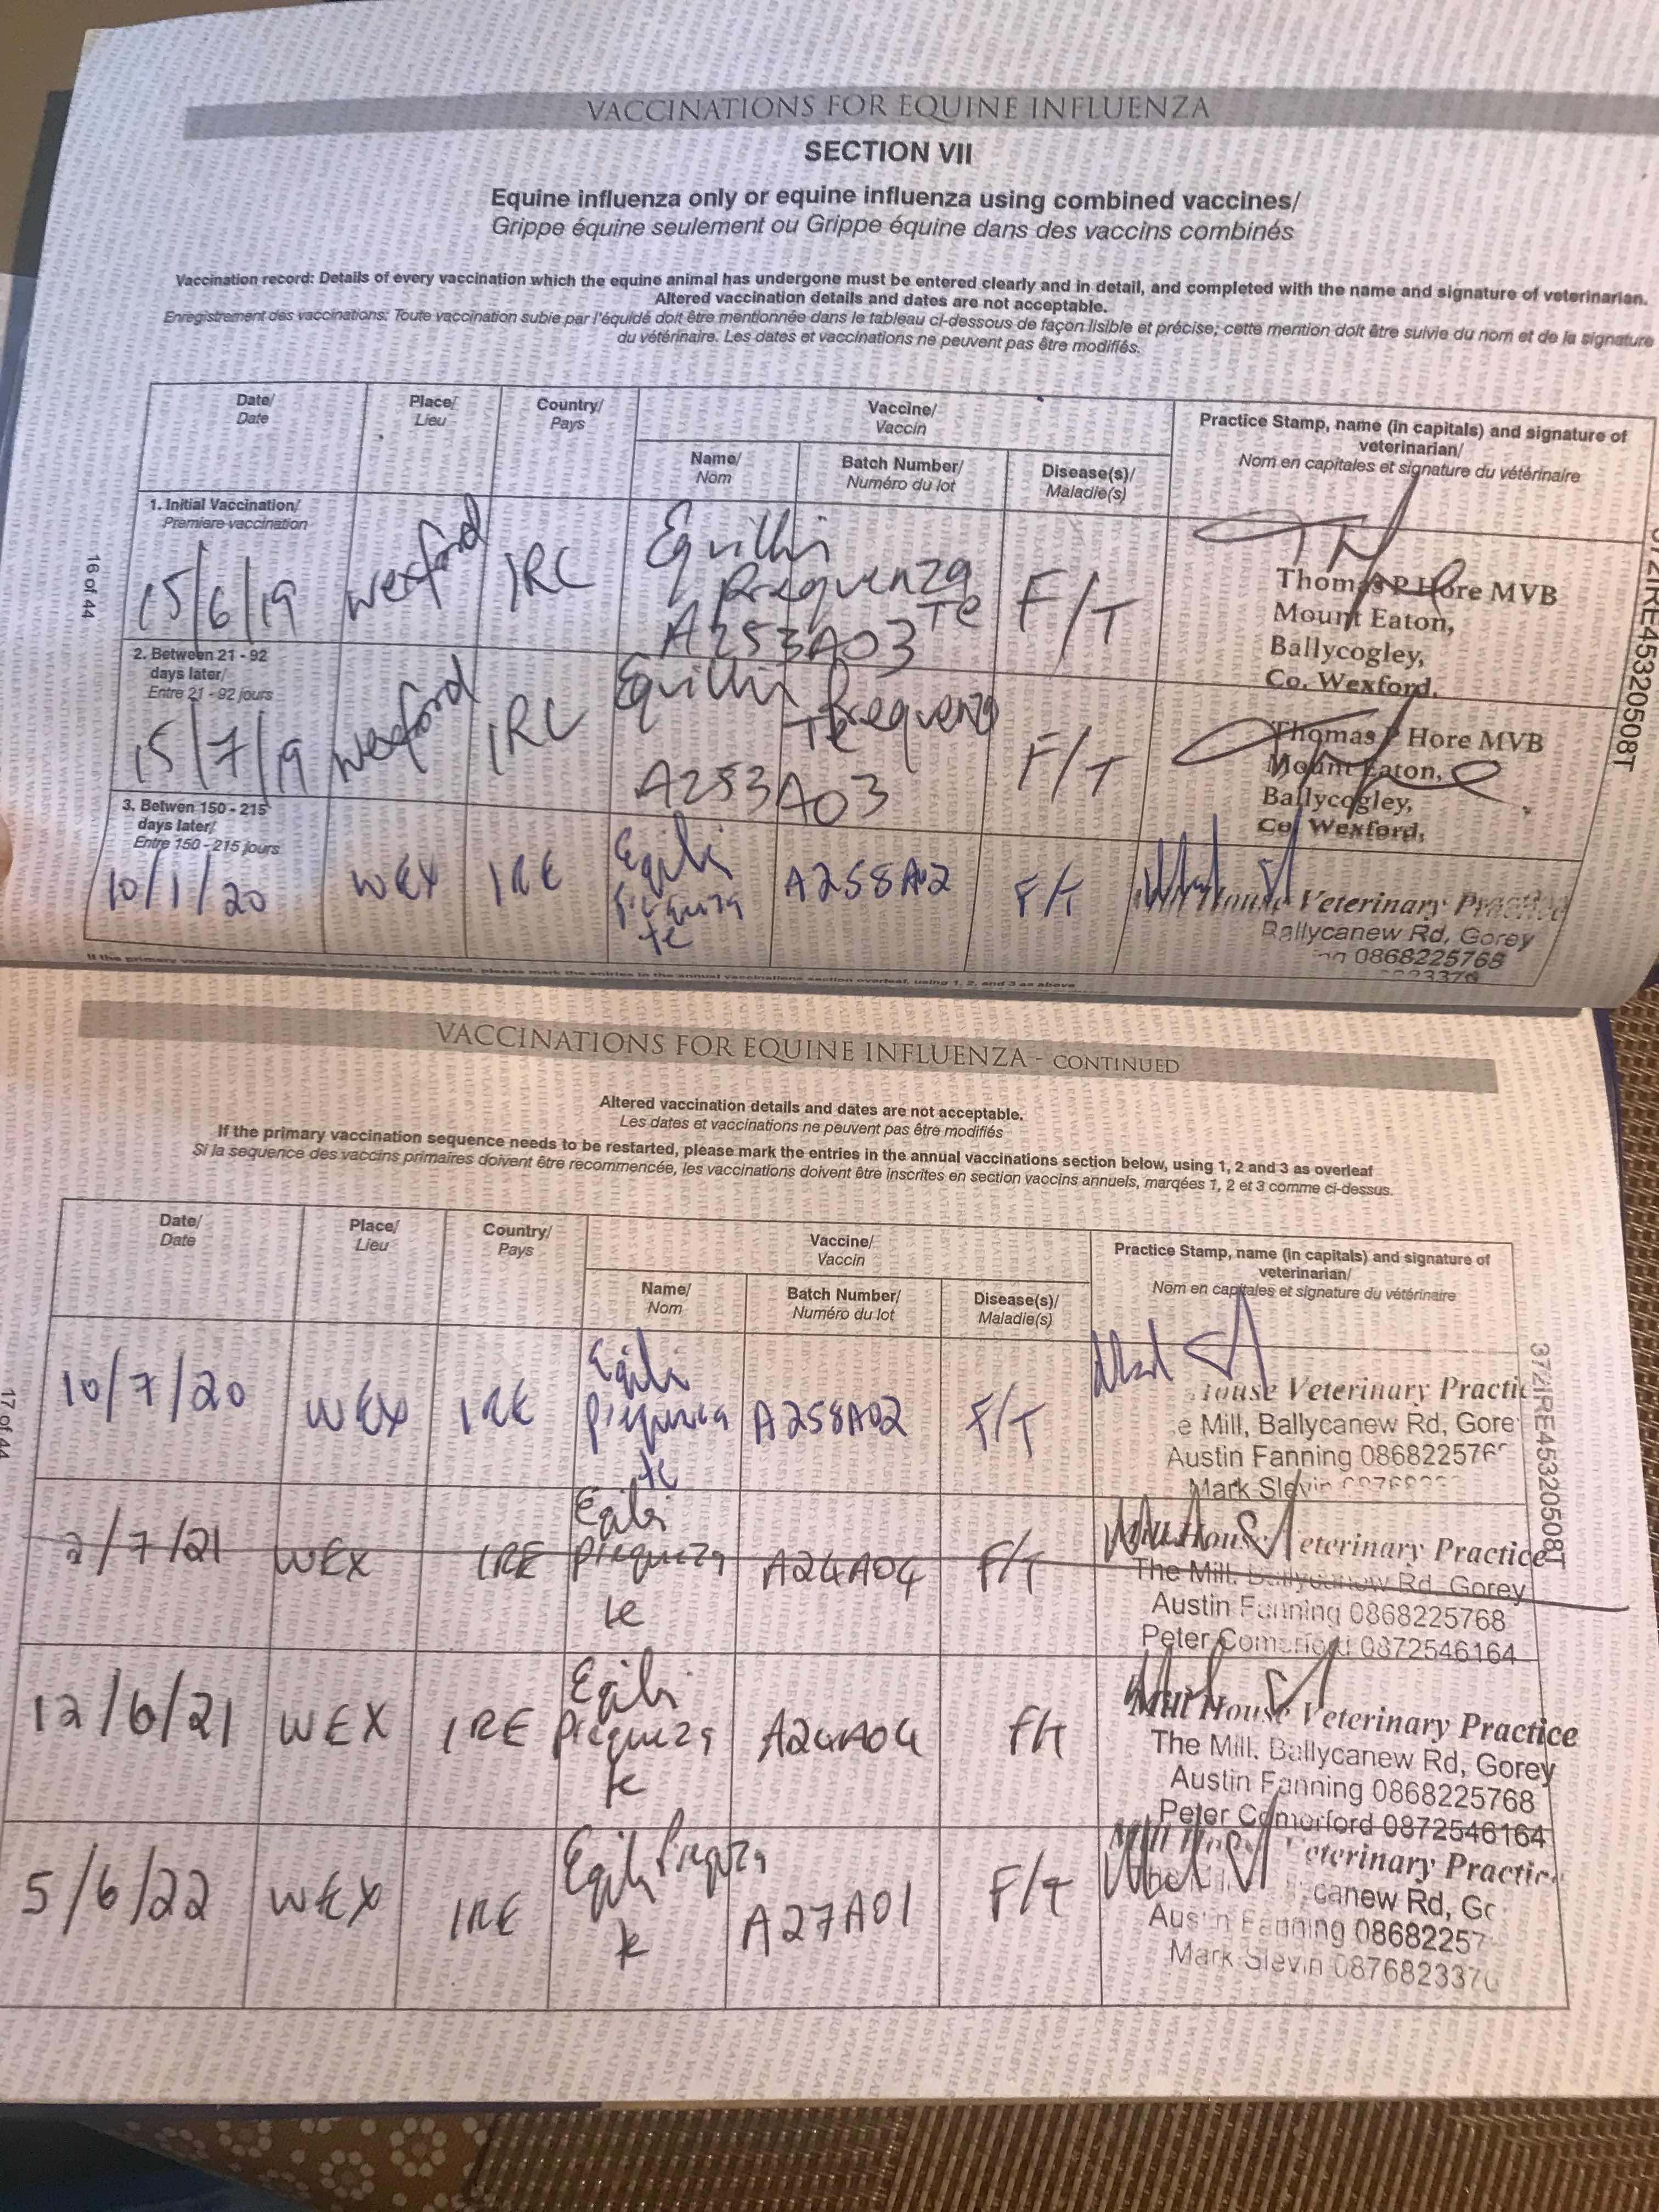 VACCINATIONS FOR EQUINE INFLUENZA
SECTION VII
Equine influenza only or equine influenza using combined vaccines/
Grippe équine seulement ou Grippe équine dans des vaccins combinés
Vaccination record: Details of every vaccination which the equine animal has undergone must be entered clearly and in detail, and completed with the name and signature of veterinarian.
Altered vaccination details and dates are not acceptable.
Enregistrement des vaccinations: Toute vaccination subie par l'équidé doit être mentionnée dans le tableau ci-dessous de façon lisible et précise; cette mention doit être suivie du nom et de la signature
du vétérinaire. Les dates et vaccinations ne peuvent pas être modifiés.
Date/ Place/ Country/ Vaccine/ Practice Stamp, name (in capitals) and signature of
Date Lieu Pays Vaccin veterinarian/
Name/ Batch Number/ Disease(s)/ Nom en capitales et signature du vétérinaire
Nom Numéro du lot Maladie(s)
1. Initial Vaccination/
Premiere vaccination
15/6/19 Wexford IRL Equilis Prequenza Te A253A03 F/T
Thomas P Hore MVB
Mount Eaton,
Ballycogley,
Co. Wexford.
2. Between 21 - 92
days later/
Entre 21 - 92 jours
15/7/19 Wexford IRL Equilis Prequenza Te A253A03 F/T
Thomas P Hore MVB
Mount Eaton,
Ballycogley,
Co. Wexford.
3. Betwen 150 - 215
days later/
Entre 150 - 215 jours
10/1/20 WEX IRE te A258A02 F/T
House Veterinary Practice
Ballycanew Rd, Gorey
0868225768
16 of 44
372IRE45320508T
If the primary vaccination sequence needs to be restarted, please mark the entries in the annual vaccinations section overleaf, using 1, 2, and 3 as above
VACCINATIONS FOR EQUINE INFLUENZA - CONTINUED
Altered vaccination details and dates are not acceptable.
Les dates et vaccinations ne peuvent pas être modifiés
If the primary vaccination sequence needs to be restarted, please mark the entries in the annual vaccinations section below, using 1, 2 and 3 as overleaf
Si la sequence des vaccins primaires doivent être recommencée, les vaccinations doivent être inscrites en section vaccins annuels, marqées 1, 2 et 3 comme ci-dessus.
Date/ Place/ Country/ Vaccine/ Practice Stamp, name (in capitals) and signature of
Date Lieu Pays Vaccin veterinarian/
Name/ Batch Number/ Disease(s)/ Nom en capitales et signature du vétérinaire
Nom Numéro du lot Maladie(s)
10/7/20 WEX IRE te A258A02 F/T
House Veterinary Practic
e Mill, Ballycanew Rd, Gore
Austin Fanning 086822576
Mark Slevin
2/7/21 WEX IRE te A24A04 F/T
Mill House Veterinary Practice
The Mill, Ballycanew Rd, Gorey
Austin Fanning 0868225768
Peter Comerford 0872546164
12/6/21 WEX IRE te A24A04 F/T
Mill House Veterinary Practice
The Mill, Ballycanew Rd, Gorey
Austin Fanning 0868225768
Peter Comerford 0872546164
5/6/22 WEX IRE te A27A01 F/T
Veterinary Practic
canew Rd, Go
Austin Fanning 08682257
Mark Slevin 087682337
17 of 44
372IRE45320508T